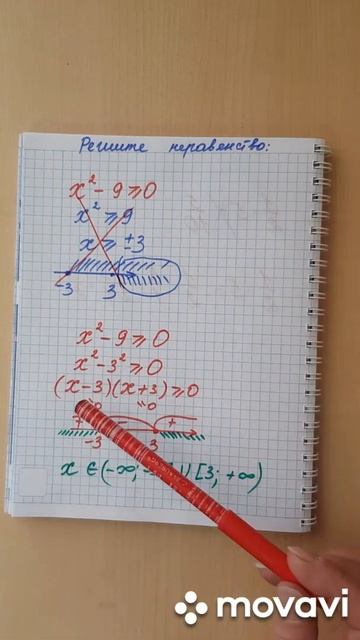 Решите неравенство:
x² - 9 ⩾ 0
x² ⩾ 9
x ⩾ ±3
-3 3
x² - 9 ⩾ 0
x² - 3² ⩾ 0
(x - 3)(x + 3) ⩾ 0
=0 =0
+ +
-3 3
x ∈ (-∞; ] ∪ [3; +∞)
movavi